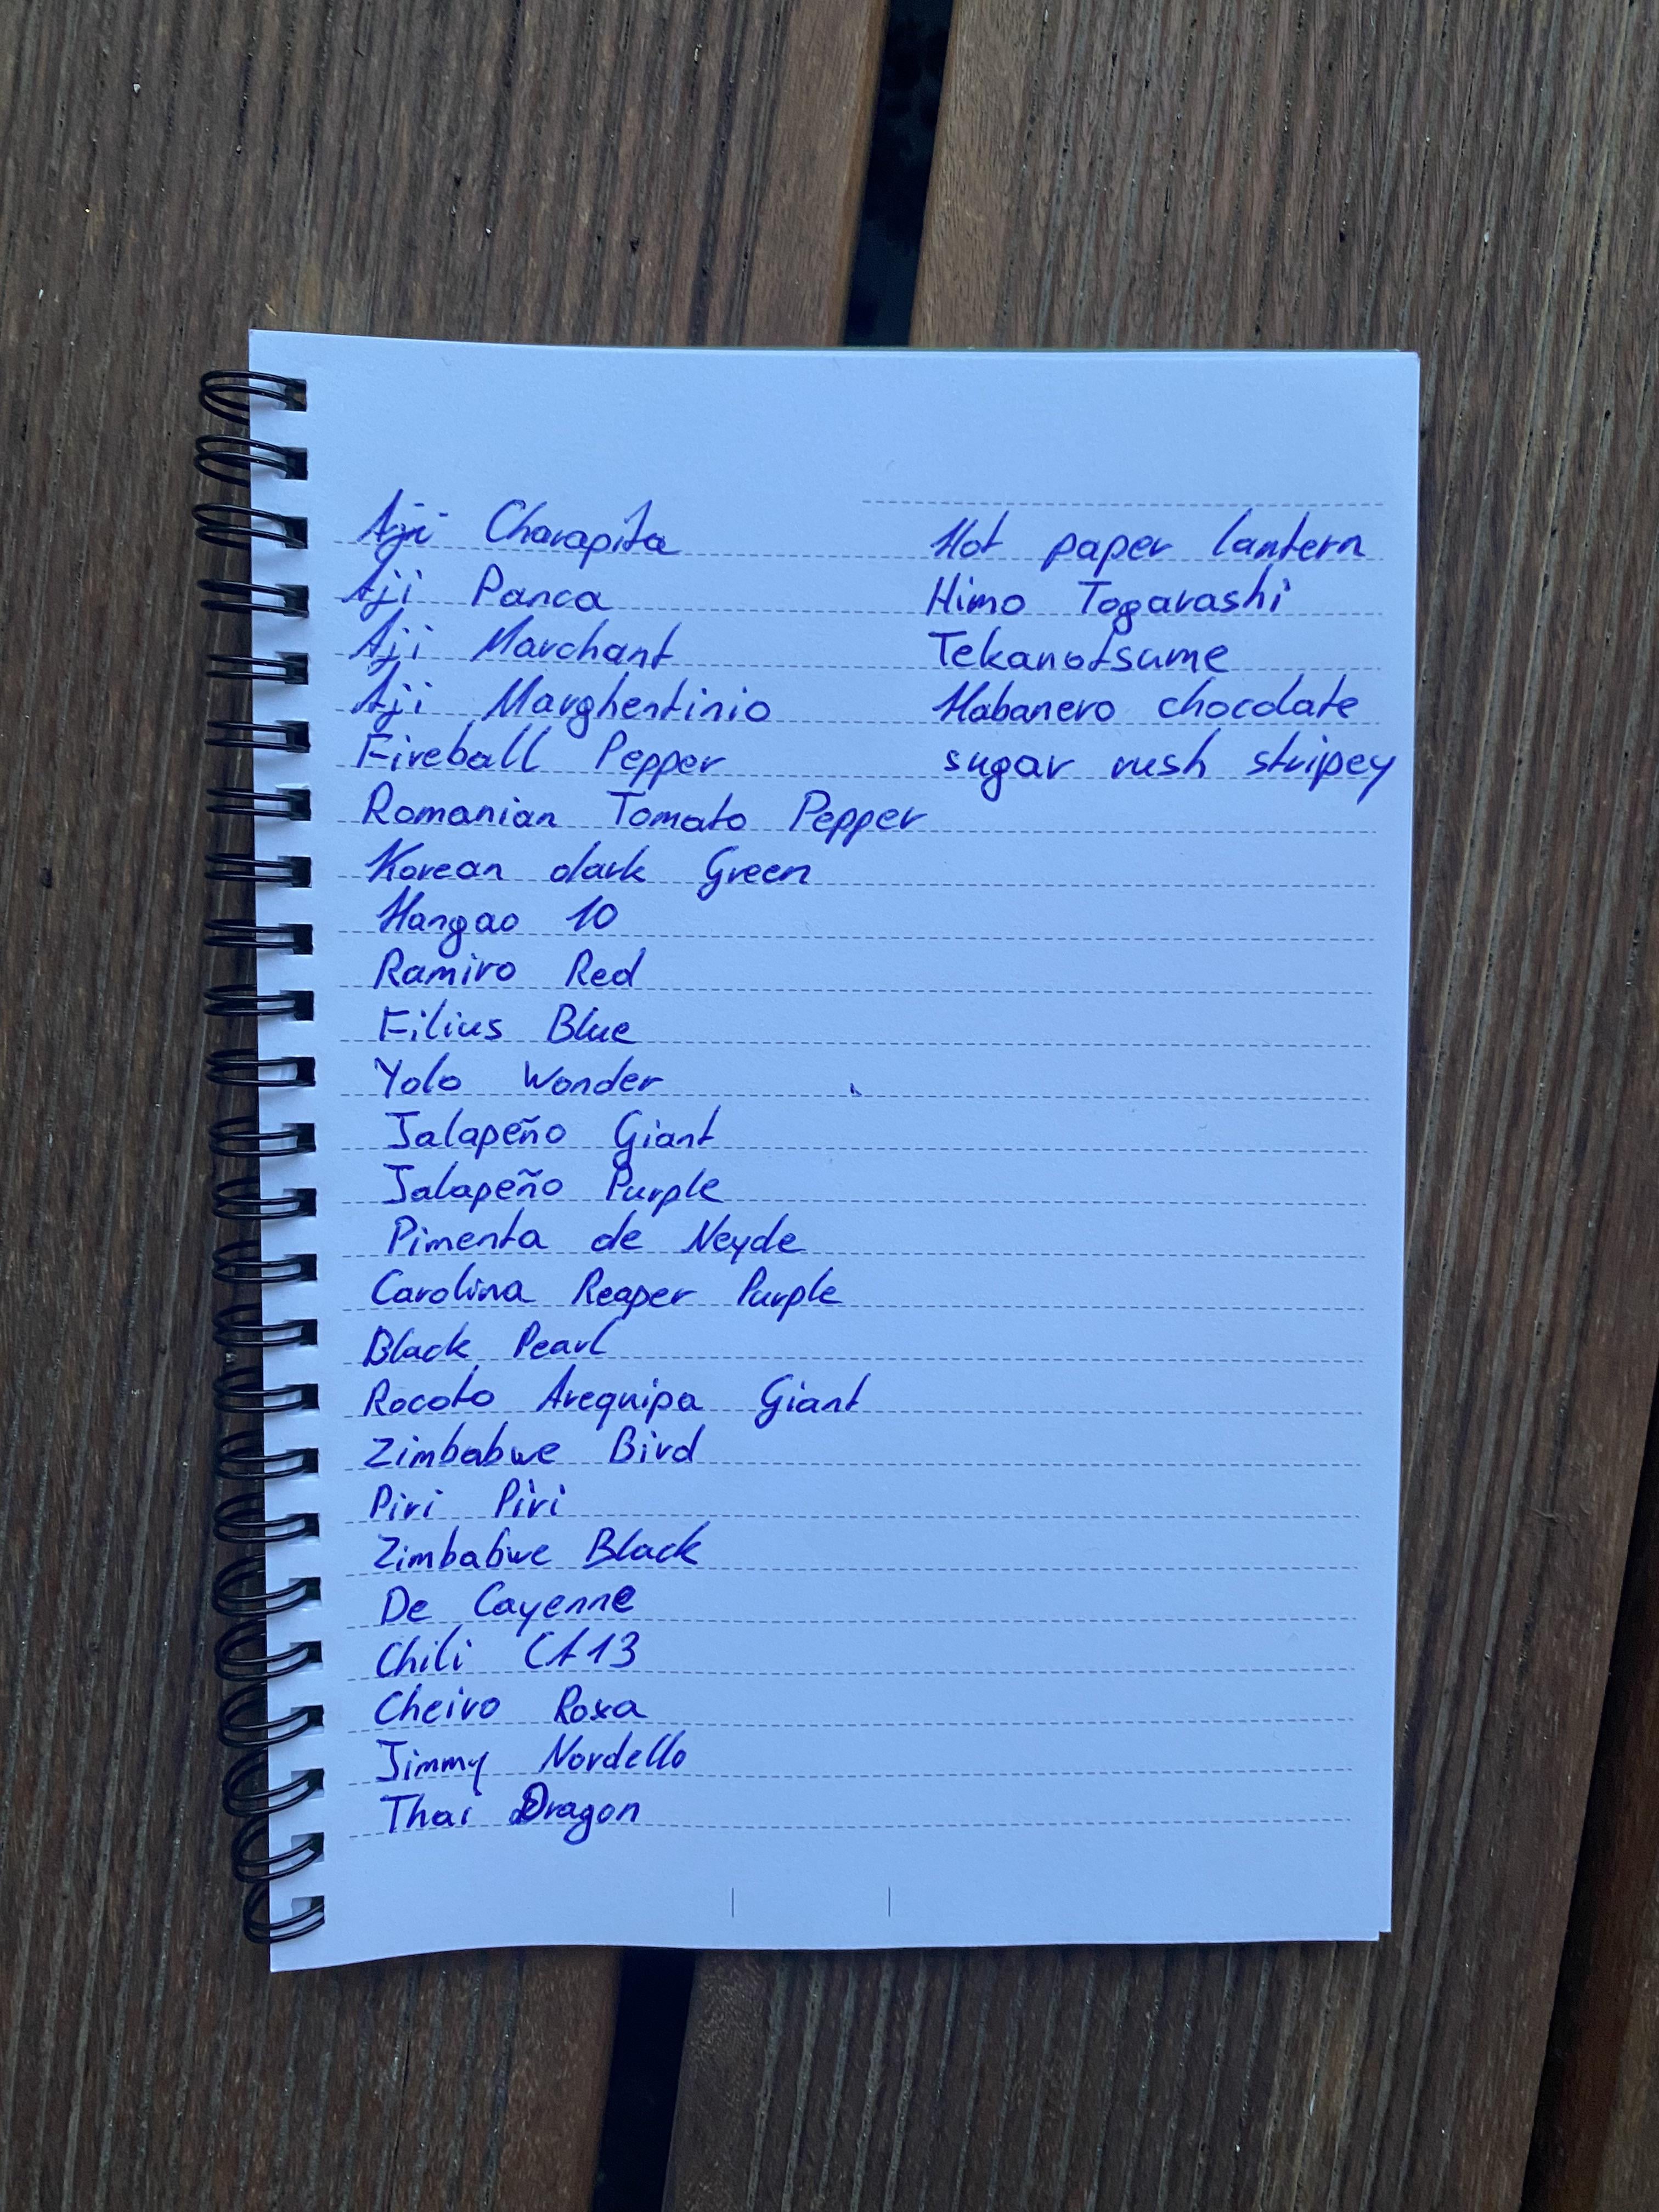 Aji Charapita
Aji Panca
Aji Marchant
Aji Marghentinio
Fireball Pepper
Romanian Tomato Pepper
Korean dark Green
Hangao 10
Ramiro Red
Filius Blue
Yolo Wonder
Jalapeño Giant
Jalapeño Purple
Pimenta de Neyde
Carolina Reaper Purple
Black Pearl
Rocoto Arequipa Giant
Zimbabwe Bird
Piri Piri
Zimbabwe Black
De Cayenne
Chili CA13
Cheiro Roxa
Jimmy Nordello
Thai Dragon
Hot paper lantern
Himo Togarashi
Tekanotsume
Habanero chocolate
sugar rush stripey